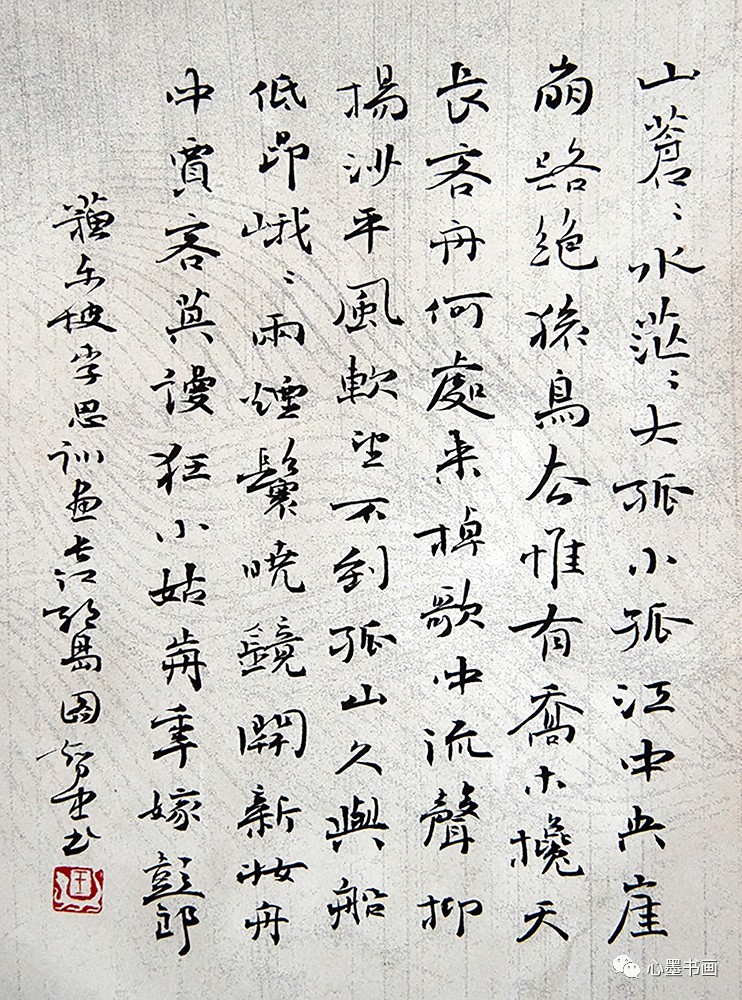 山蒼〻水茫〻大孤小孤江中央崖
崩路絶猿鳥去惟有喬木攙天
長客舟何處来棹歌中流聲抑
揚沙平風軟望不到孤山久與船
低昂峨〻兩煙鬟曉鏡開新妝舟
中賈客莫謾狂小姑前年嫁彭郎
蘇东坡李思训画長江絶島图书
王
心墨书画